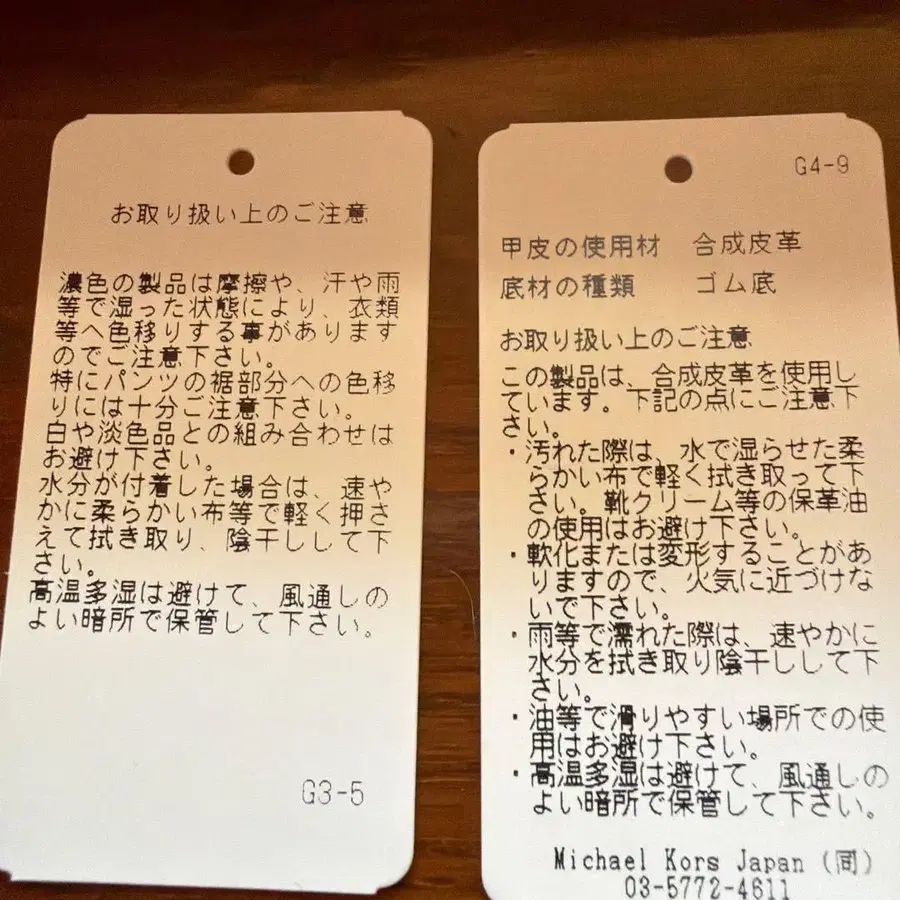 お取り扱い上のご注意
濃色の製品は摩擦や、汗や雨
等で湿った状態により、衣類
等へ色移りする事があります
のでご注意下さい。
特にパンツの裾部分への色移
りには十分ご注意下さい。
白や淡色品との組み合わせは
お避け下さい。
水分が付着した場合は、速や
かに柔らかい布等で軽く押さ
えて拭き取り、陰干しして下
さい。
高温多湿は避けて、風通しの
よい暗所で保管して下さい。
G3-5
G4-9
甲皮の使用材 合成皮革
底材の種類 ゴム底
お取り扱い上のご注意
この製品は、合成皮革を使用し
ています。下記の点にご注意下
さい。
・汚れた際は、水で湿らせた柔
らかい布で軽く拭き取って下
さい。靴クリーム等の保革油
の使用はお避け下さい。
・軟化または変形することがあ
りますので、火気に近づけな
いで下さい。
・雨等で濡れた際は、速やかに
水分を拭き取り陰干しして下
さい。
・油等で滑りやすい場所での使
用はお避け下さい。
・高温多湿は避けて、風通しの
よい暗所で保管して下さい。
Michael Kors Japan (同)
03-5772-4611